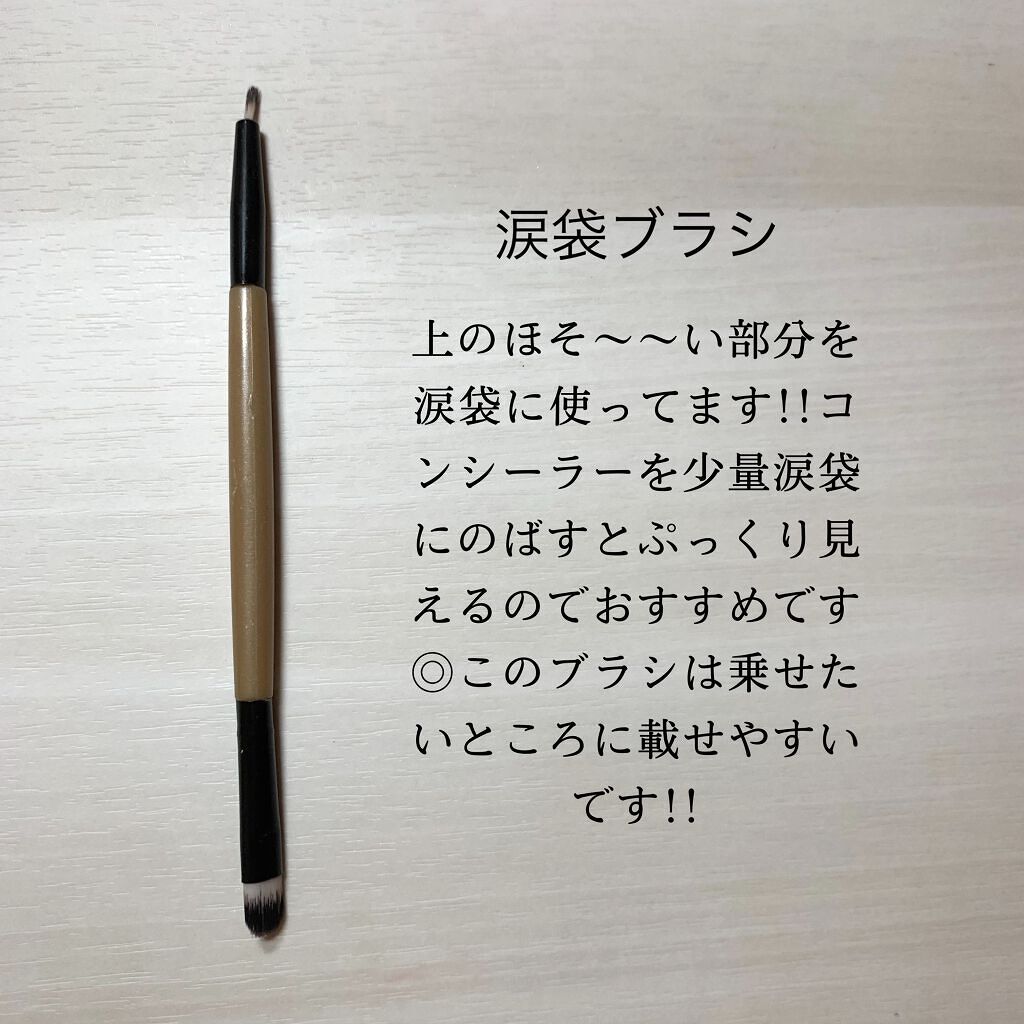 涙袋ブラシ
上のほそ〜〜い部分を
涙袋に使ってます!!コ
ンシーラーを少量涙袋
にのばすとぷっくり見
えるのでおすすめです
◎このブラシは乗せた
いところに載せやすい
です!!